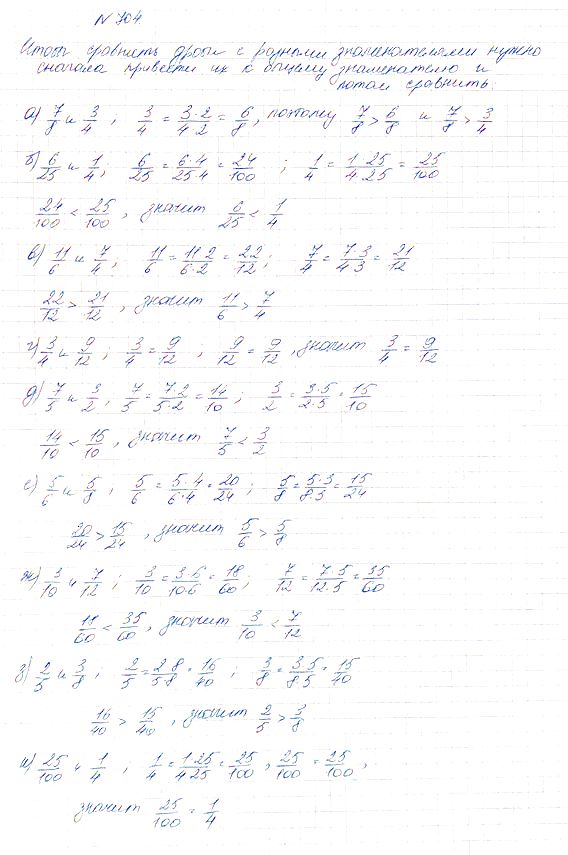 N 704
Чтобы сравнить дроби с разными знаменателями нужно
сначала привести их к общему знаменателю и
потом сравнить.
а) 7/8 и 3/4 ; 3/4 = 3·2/4·2 = 6/8 , поэтому 7/8 > 6/8 и 7/8 > 3/4
б) 6/25 и 1/4 ; 6/25 = 6·4/25·4 = 24/100 ; 1/4 = 1·25/4·25 = 25/100
24/100 < 25/100 , значит 6/25 < 1/4
в) 11/6 и 7/4 ; 11/6 = 11·2/6·2 = 22/12 ; 7/4 = 7·3/4·3 = 21/12
22/12 > 21/12 , значит 11/6 > 7/4
г) 3/4 и 9/12 ; 3/4 = 9/12 ; 9/12 = 9/12 , значит 3/4 = 9/12
д) 7/5 и 3/2 , 7/5 = 7·2/5·2 = 14/10 ; 3/2 = 3·5/2·5 = 15/10
14/10 < 15/10 , значит 7/5 < 3/2
е) 5/6 и 5/8 ; 5/6 = 5·4/6·4 = 20/24 ; 5/8 = 5·3/8·3 = 15/24
20/24 > 15/24 , значит 5/6 > 5/8
ж) 3/10 и 7/12 ; 3/10 = 3·6/10·6 = 18/60 ; 7/12 = 7·5/12·5 = 35/60
11/60 < 35/60 , значит 3/10 < 7/12
з) 2/5 и 3/8 ; 2/5 = 2·8/5·8 = 16/40 ; 3/8 = 3·5/8·5 = 15/40
16/40 > 15/40 , значит 2/5 > 3/8
и) 25/100 и 1/4 ; 1/4 = 1·25/4·25 = 25/100 , 25/100 = 25/100 ,
значит 25/100 = 1/4